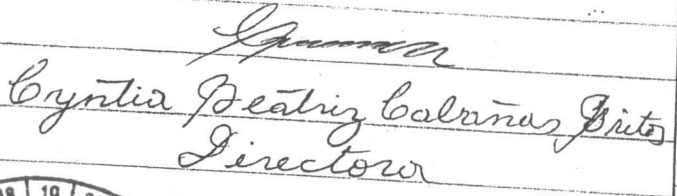 Cyntia Beatriz Cabañas Brites
Directora
19